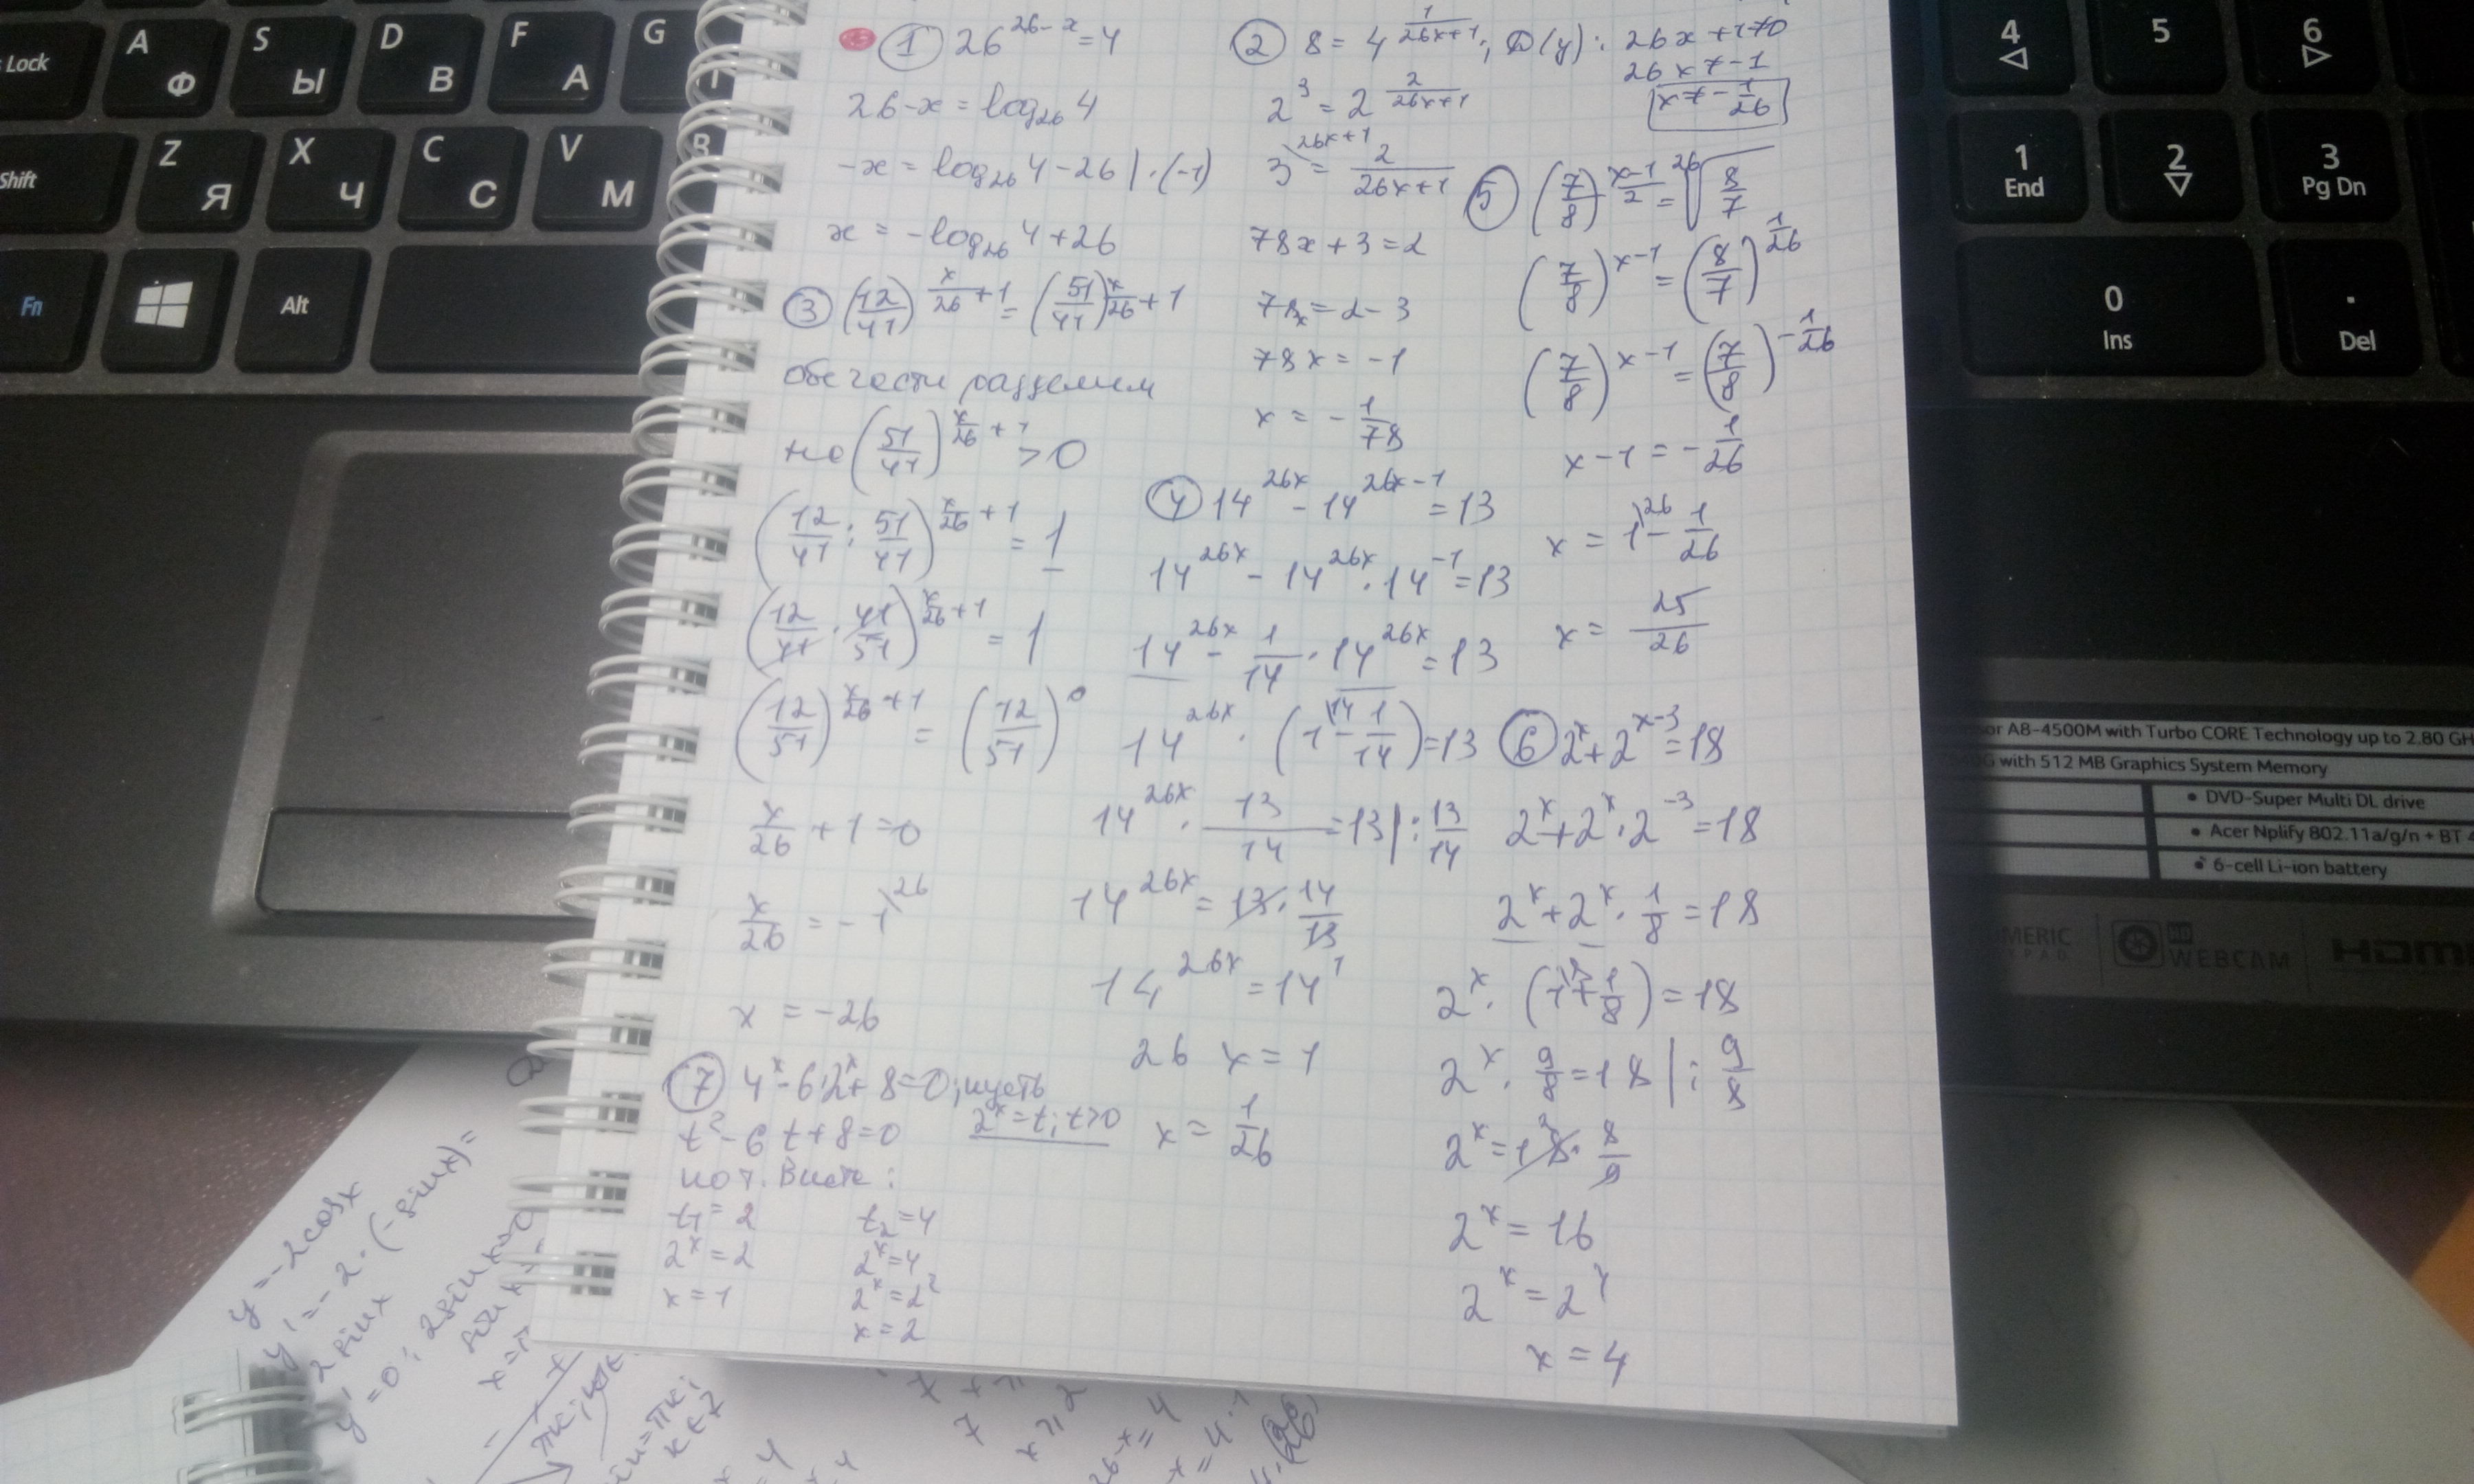 ① 26^{26-x} = 4
26-x = log₂₆ 4
-x = log₂₆ 4 - 26 | · (-1)
x = -log₂₆ 4 + 26
② 8 = 4^{\frac{1}{26x+1}}; D(y): 26x+1≠0
26x ≠ -1
x ≠ -\frac{1}{26}
2^3 = 2^{\frac{2}{26x+1}}
3^{\26x+1} = \frac{2}{26x+1}
78x + 3 = 2
78x = 2 - 3
78x = -1
x = -\frac{1}{78}
③ (\frac{12}{41})^{\frac{x}{26}+1} = (\frac{51}{41})^{\frac{x}{26}+1}
обе части разделим
на (\frac{51}{41})^{\frac{x}{26}+1} > 0
(\frac{12}{41} : \frac{51}{41})^{\frac{x}{26}+1} = 1
(\frac{12}{41} · \frac{41}{51})^{\frac{x}{26}+1} = 1
(\frac{12}{51})^{\frac{x}{26}+1} = (\frac{12}{51})^0
\frac{x}{26} + 1 = 0
\frac{x}{26} = -1^{\26}
x = -26
④ 14^{26x} - 14^{26x-1} = 13
14^{26x} - 14^{26x} · 14^{-1} = 13
14^{26x} - \frac{1}{14} · 14^{26x} = 13
14^{26x} · (1^{\14} - \frac{1}{14}) = 13
14^{26x} · \frac{13}{14} = 13 | : \frac{13}{14}
14^{26x} = 13 · \frac{14}{13}
14^{26x} = 14^1
26x = 1
x = \frac{1}{26}
⑤ (\frac{7}{8})^{\frac{x-1}{2}} = \sqrt[26]{\frac{8}{7}}
(\frac{7}{8})^{x-1} = (\frac{8}{7})^{\frac{1}{26}}
(\frac{7}{8})^{x-1} = (\frac{7}{8})^{-\frac{1}{26}}
x-1 = -\frac{1}{26}
x = 1^{\26} - \frac{1}{26}
x = \frac{25}{26}
⑥ 2^x + 2^{x-3} = 18
2^x + 2^x · 2^{-3} = 18
2^x + 2^x · \frac{1}{8} = 18
2^x · (1^{\8} + \frac{1}{8}) = 18
2^x · \frac{9}{8} = 18 | : \frac{9}{8}
2^x = 18^2 · \frac{8}{9}
2^x = 16
2^x = 2^4
x = 4
⑦ 4^x - 6·2^x + 8 = 0; пусть
2^x = t; t>0
t² - 6t + 8 = 0
по т. Виета:
t₁ = 2
2^x = 2
x = 1
t₂ = 4
2^x = 4
2^x = 2^2
x = 2
y = -2cosx
y' = -2·(-sinx) =
2 sinx
y' = 0; 2sinx=0
πk;
k∈Z
Lock
A Ф
S Ы
D В
F А
G
Shift
Z Я
X Ч
C С
V М
B
Fn
Alt
4
5
6
1 End
2
3 Pg Dn
0 Ins
. Del
A8-4500M with Turbo CORE Technology up to 2.80 GH
G with 512 MB Graphics System Memory
• DVD-Super Multi DL drive
• Acer Nplify 802.11a/g/n + BT 4
• 6-cell Li-ion battery
MERIC
PAD
HD WEBCAM
HDMI